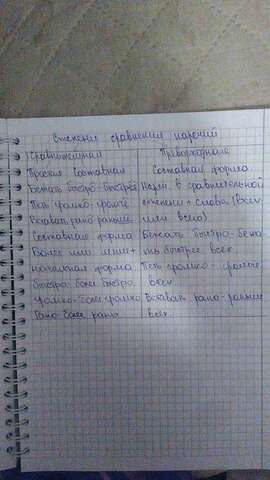 Степени сравнения наречий
Сравнительная Превосходная
Простая Составная Составная форма
Бежать быстро быстрее Нареч. в сравнительной
Петь громко-громче степени + слова (Всех
Вставать рано раньше или всего)
Составная форма Бежать быстро-бежа
Более или менее + ть быстрее всех
начальная форма Петь громко - громче
быстро-более быстро всех
громко-более громко Вставать рано-раньше
Рано-более рано всех.